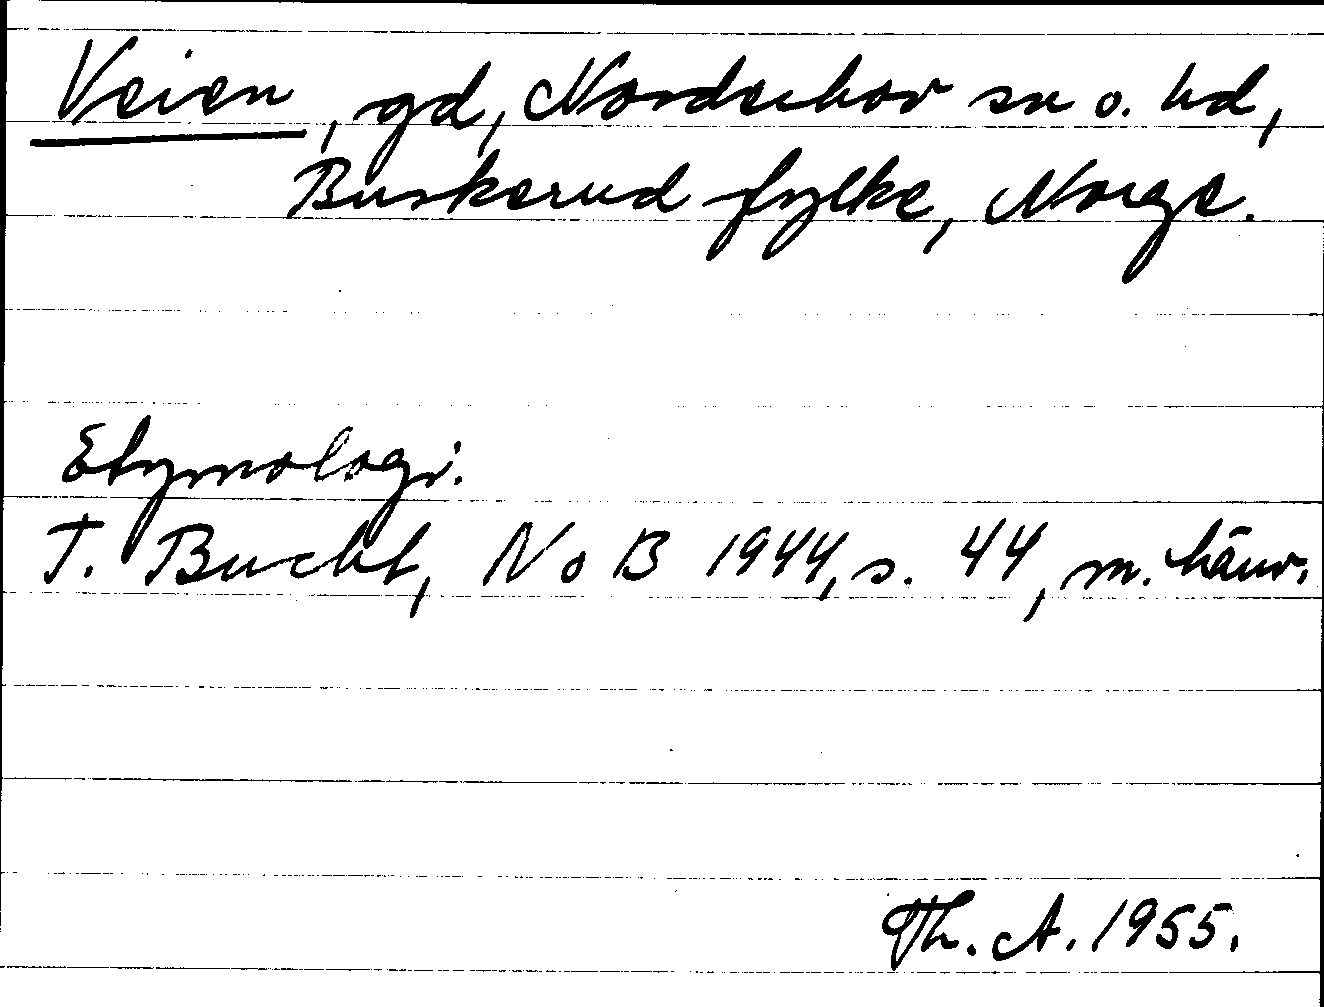 Veien, gd, Norderhov sn o. hd,
Buskerud fylke, Norge.
Etymologi.
T. Bucht, NoB 1944, s. 44, m. hänv.
Th. A. 1955.